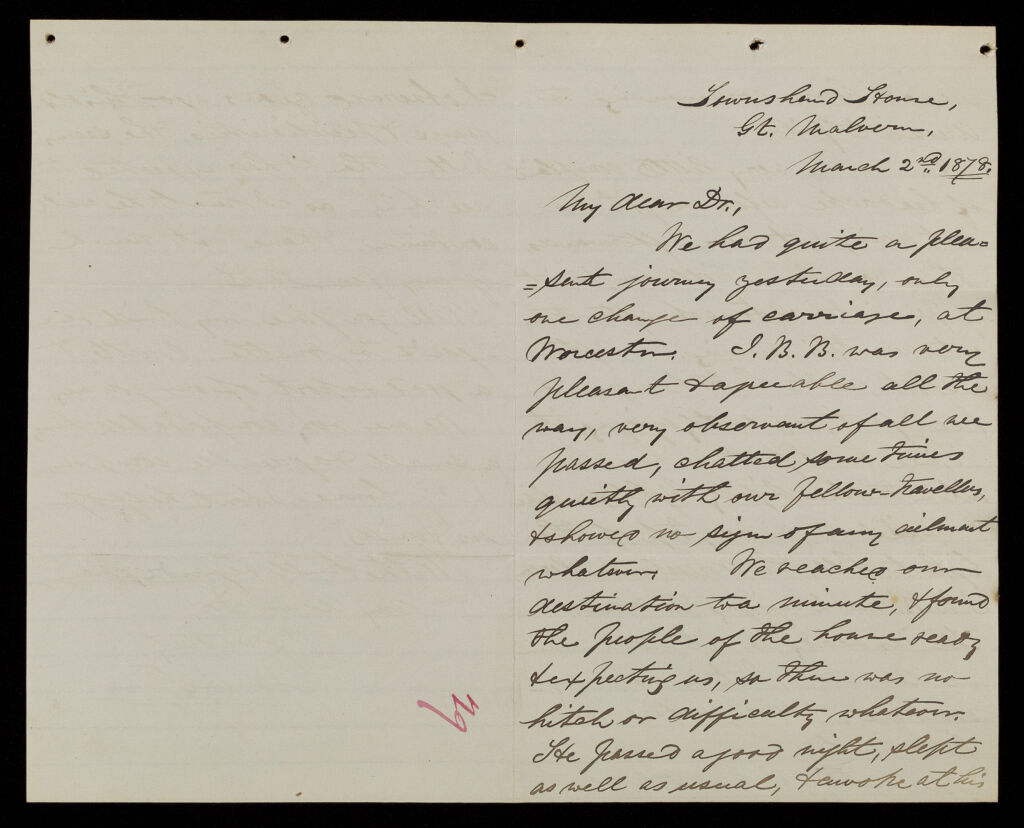 Townshend House,
Gt. Malvern,
March 2nd. 1878.
My dear Dr.,
We had quite a plea=
=sent journey yesterday, only
one change of carriage, at
Worcester. I. B. B. was very
pleasant & agreeable all the
way, very observant of all we
passed, chatted sometimes
quietly with our fellow-travellers,
& showed no sign of any ailment
whatever. We reached our
destination to a minute, & found
the people of the house ready
& expecting us, so there was no
hitch or difficulty whatever.
He passed a good night, slept
as well as usual, & awoke at his